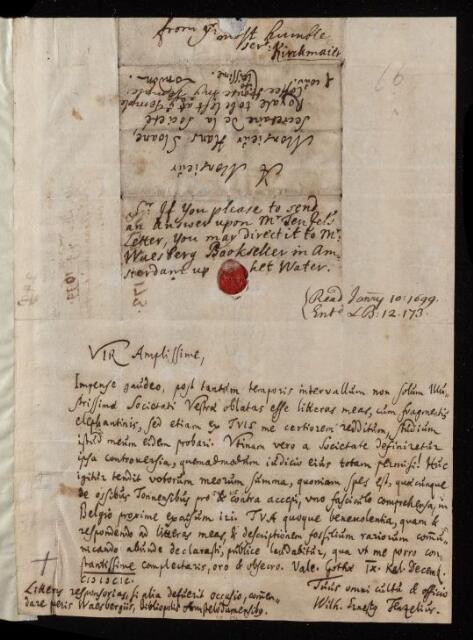 from yr. most humble
servt. Kirckmaier
A Monsieur
Monsieur Hans Sloane,
Secretaire de la Societé
Royale to be left at ye Temple
Coffee House
London.
Sr. If You please to send
an Answer upon Mr Tenzel's
Letter, You may direct it to Mr.
Waesberg Bookseller in Am-
sterdam up het Water.
Read Janry 10. 1699.
Entd LB. 12. 173.
VIR Amplissime,
Impense gaudeo, post tantum temporis intervallum non solum Illu-
strissimæ Societati Vestræ oblatas esse litteras meas, cum fragmentis
elephantinis, sed etiam ex TVIS me certiorem redditum, studium
istud meum eidem probari. Utinam vero a Societate definiretur
ipsa controversia, quemadmodum iudicio eius totam permisi! Huc
igitur tendit votorum meorum summa, quoniam spes est, quæcunque
de ossibus Tonnensibus pro & contra accepi, uno fasciculo comprehensa, in
Belgio proxime excusum iri. TVA quoque benevolentia, quam &
respondendo ad litteras meas & descriptionem fossilium rariorum commu-
nicando abunde declarasti, publice laudabitur, qua ut me porro con-
stantissime complectaris, oro & obsecro. Vale. Gothæ IX. Kal. Decemb.
CIƆIƆCIC.
Tuus omni cultu & officio
Wilh. Ernestg Tenzelius.
Litteras responsorias, si alia defuerit occasio, commen-
dare poteris Waesbergiis, bibliopolis Amstelodamensibg.